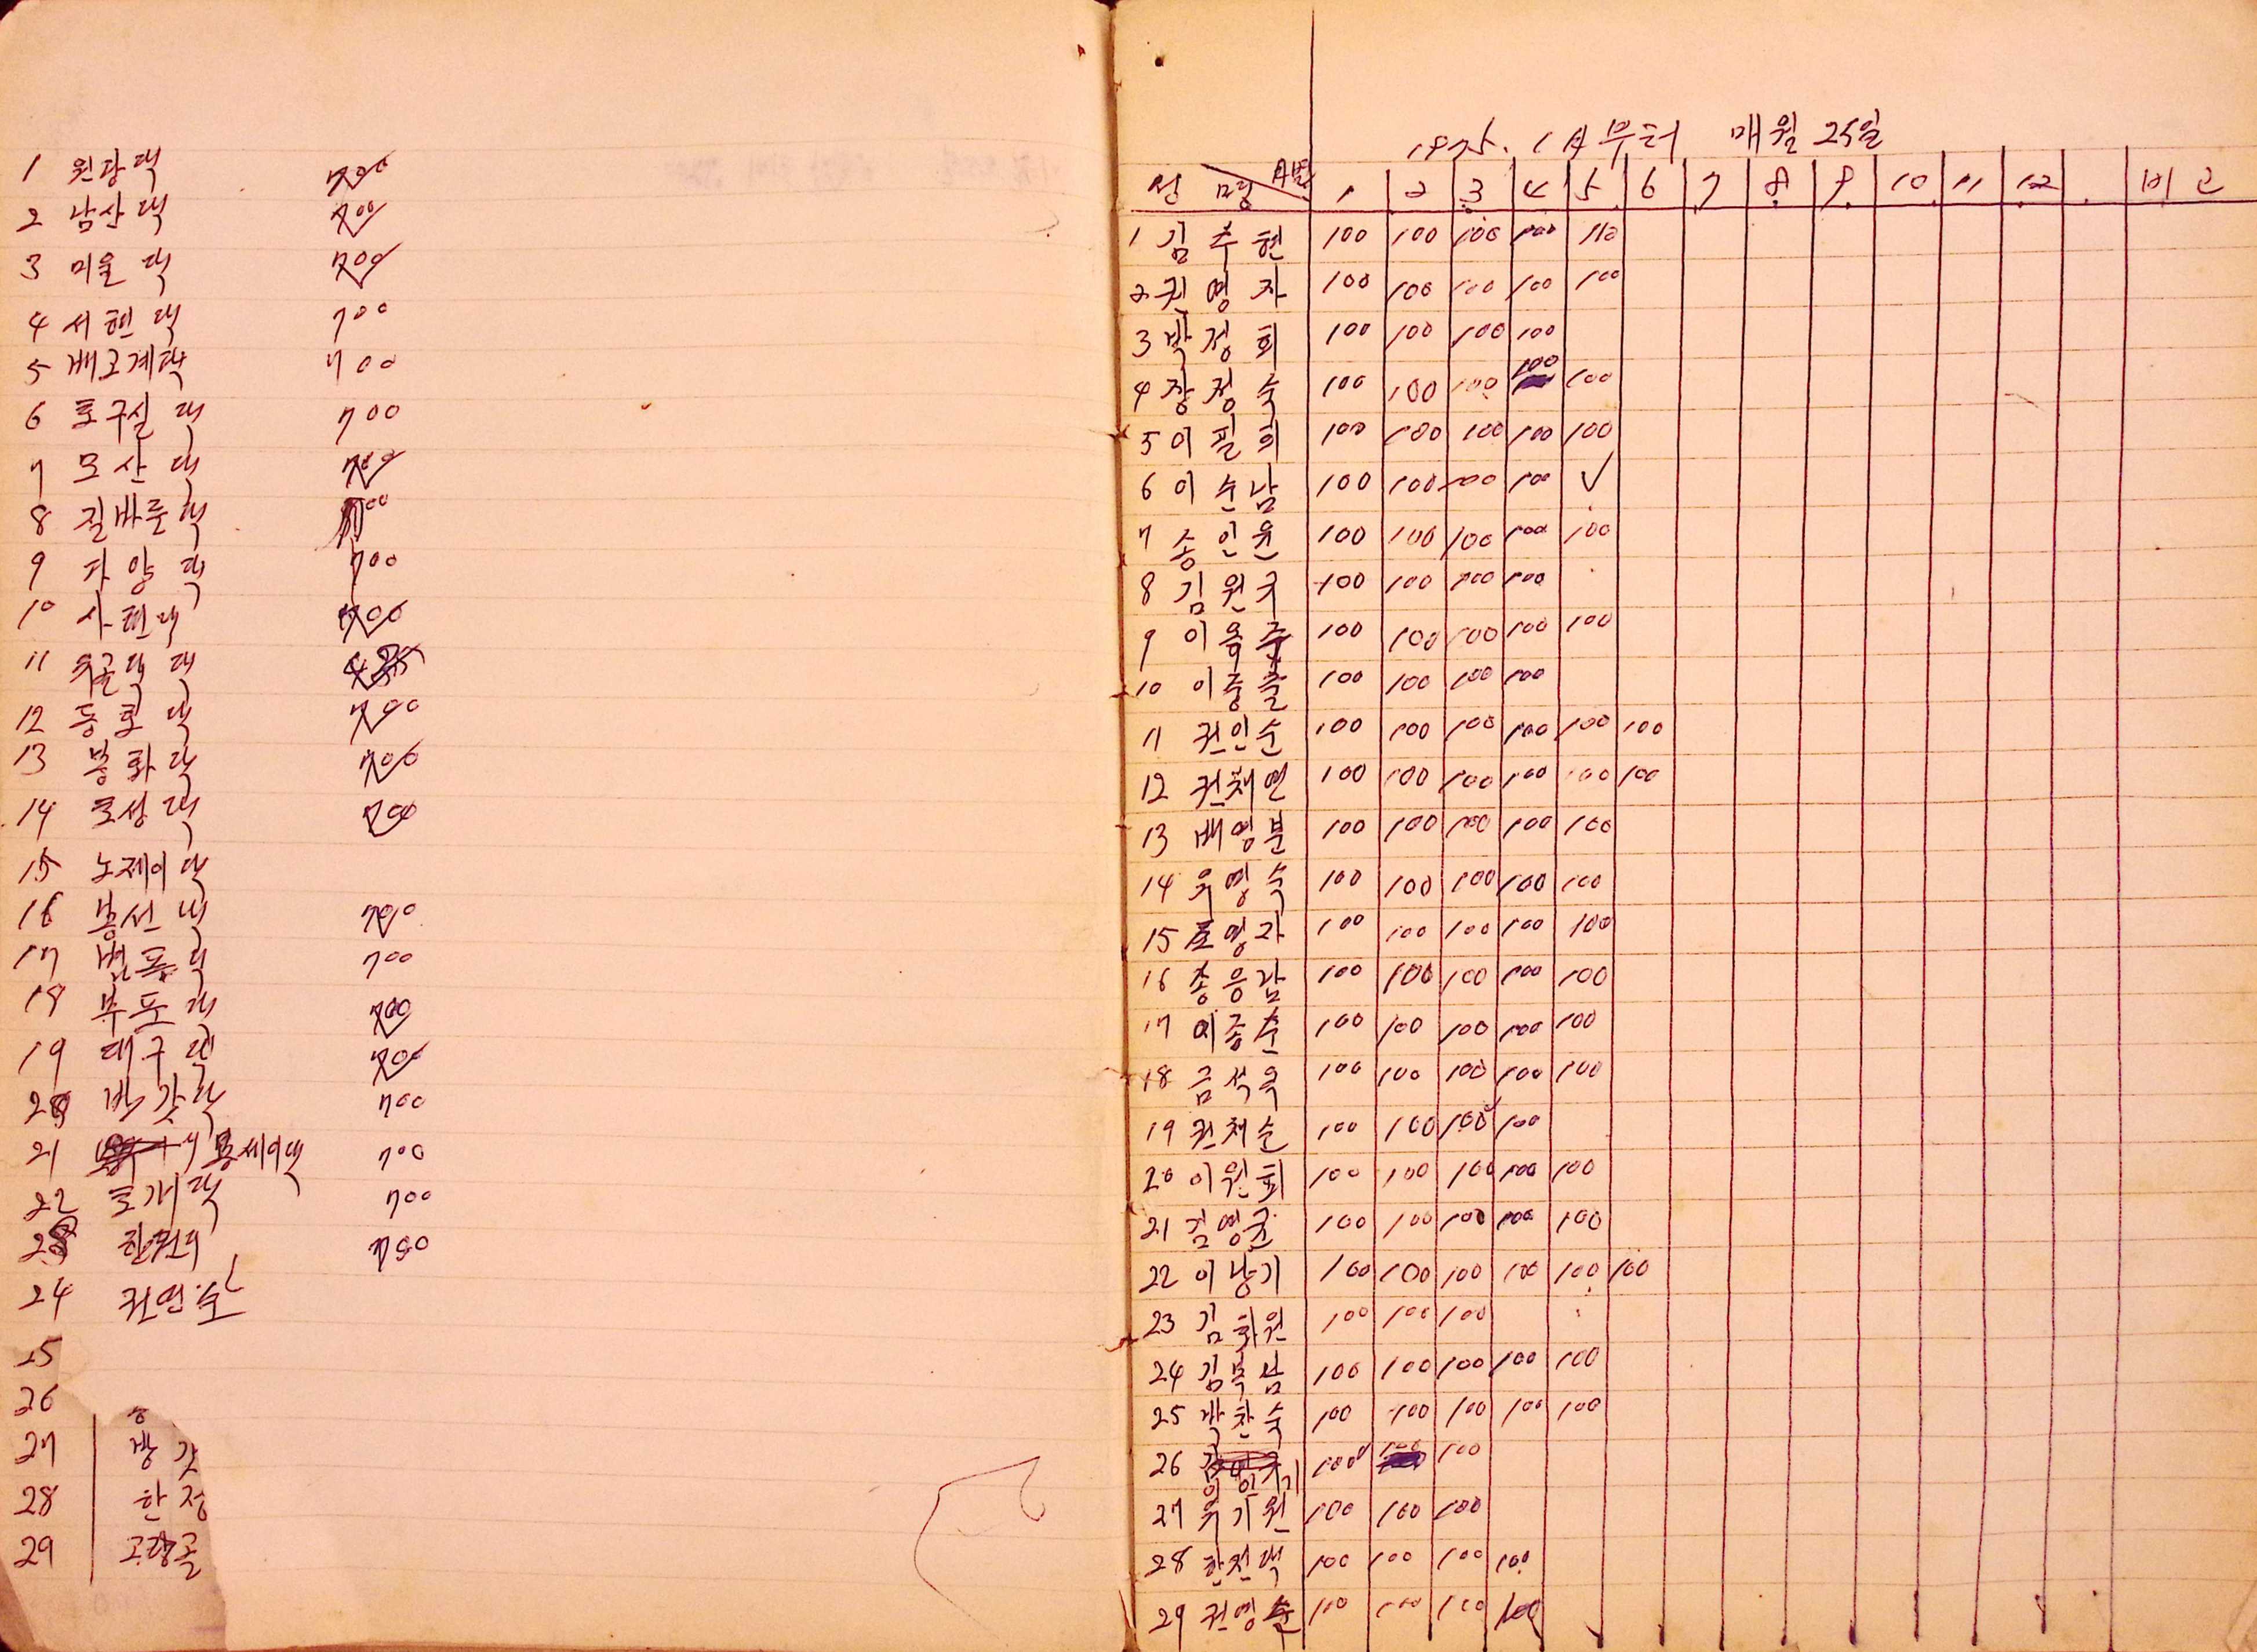 1 원당댁 700
2 남산댁 700
3 미울댁 700
4 서현댁 700
5 배고계댁 700
6 토구실댁 700
7 모산댁 700
8 질바룬댁 700
9 파양댁 700
10 사현댁 700
11
12 동포댁 700
13 봉화댁 700
14 토성댁 700
15 노제이댁
16 봉선댁 700
17 법동댁 700
18 부포댁 700
19 대구댁 700
20 박갓댁 700
21 봉세이댁 700
22 토가댁 700
23 700
24 권연순
25
26
27 방갓
28 한정
29 고랑골
1975. 1月부터 매월 25일
성명 月별 1 2 3 4 5 6 7 8 9 10 11 12 비고
1 김추현 100 100 100 100 110
2 권영자 100 100 100 100 100
3 박정희 100 100 100 100
4 장정숙 100 100 100 100 100
5 이필희 100 100 100 100 100
6 이순남 100 100 100 100 ✓
7 송인윤 100 100 100 100 100
8 김원국 100 100 100 100
9 이옥주 100 100 100 100 100
10 이중출 100 100 100 100
11 권인순 100 100 100 100 100 100
12 권채연 100 100 100 100 100 100
13 배영분 100 100 100 100 100
14 우영숙 100 100 100 100 100
15 조영자 100 100 100 100 100
16 송응남 100 100 100 100 100
17 이종순 100 100 100 100 100
18 금석옥 100 100 100 100 100
19 권채순 100 100 100 100
20 이원희 100 100 100 100 100
21 김영균 100 100 100 100 100
22 이낭기 100 100 100 100 100 100
23 김화원 100 100 100
24 김복남 100 100 100 100 100
25 박찬숙 100 100 100 100 100
26 100 100 100
27 우기원 100 100 100
28 한전댁 100 100 100 100
29 권영순 100 100 100 100